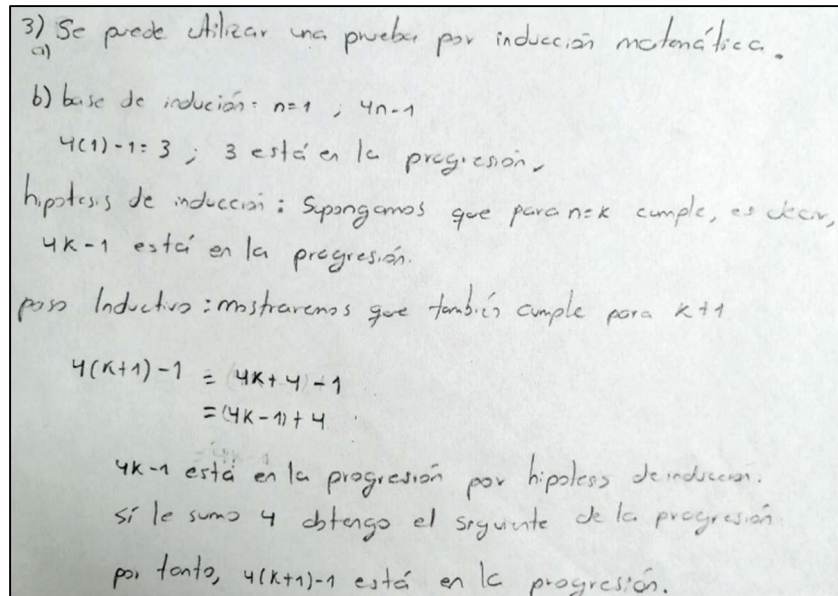 3) Se puede utilizar una prueba por inducción matemática.
a)
b) base de indución: n=1 ; 4n-1
4(1)-1=3 ; 3 está en la progresión.
hipotesis de inducción: Supongamos que para n=k cumple, es decir,
4k-1 está en la progresión.
paso Inductivo: mostraremos que también cumple para k+1
4(k+1)-1 = (4k+4)-1
=(4k-1)+4
4k-1 está en la progresión por hipotesis de induccion.
si le sumo 4 obtengo el siguiente de la progresión
por tanto, 4(k+1)-1 está en la progresión.